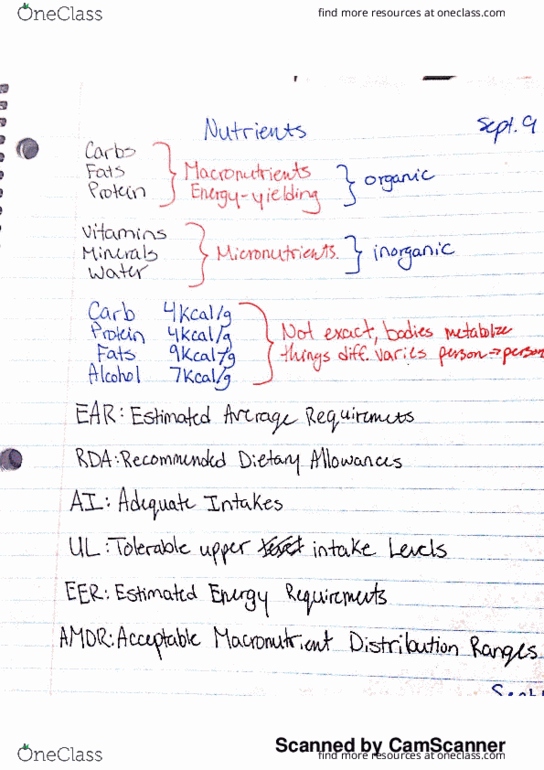 OneClass
find more resources at oneclass.com
Nutrients
Sept. 9
Carbs
Fats
Protein
Macronutrients
Energy-yielding
organic
Vitamins
Minerals
Water
Micronutrients.
inorganic
Carb 4Kcal/g
Protein 4Kcal/g
Fats 9Kcal/g
Alcohol 7Kcal/g
Not exact, bodies metabolize
things diff. varies person→person
EAR: Estimated Average Requirements
RDA: Recommended Dietary Allowances
AI: Adequate Intakes
UL: Tolerable upper intake Levels
EER: Estimated Energy Requirements
AMDR: Acceptable Macronutrient Distribution Ranges
Scanned by CamScanner
OneClass
find more resources at oneclass.com